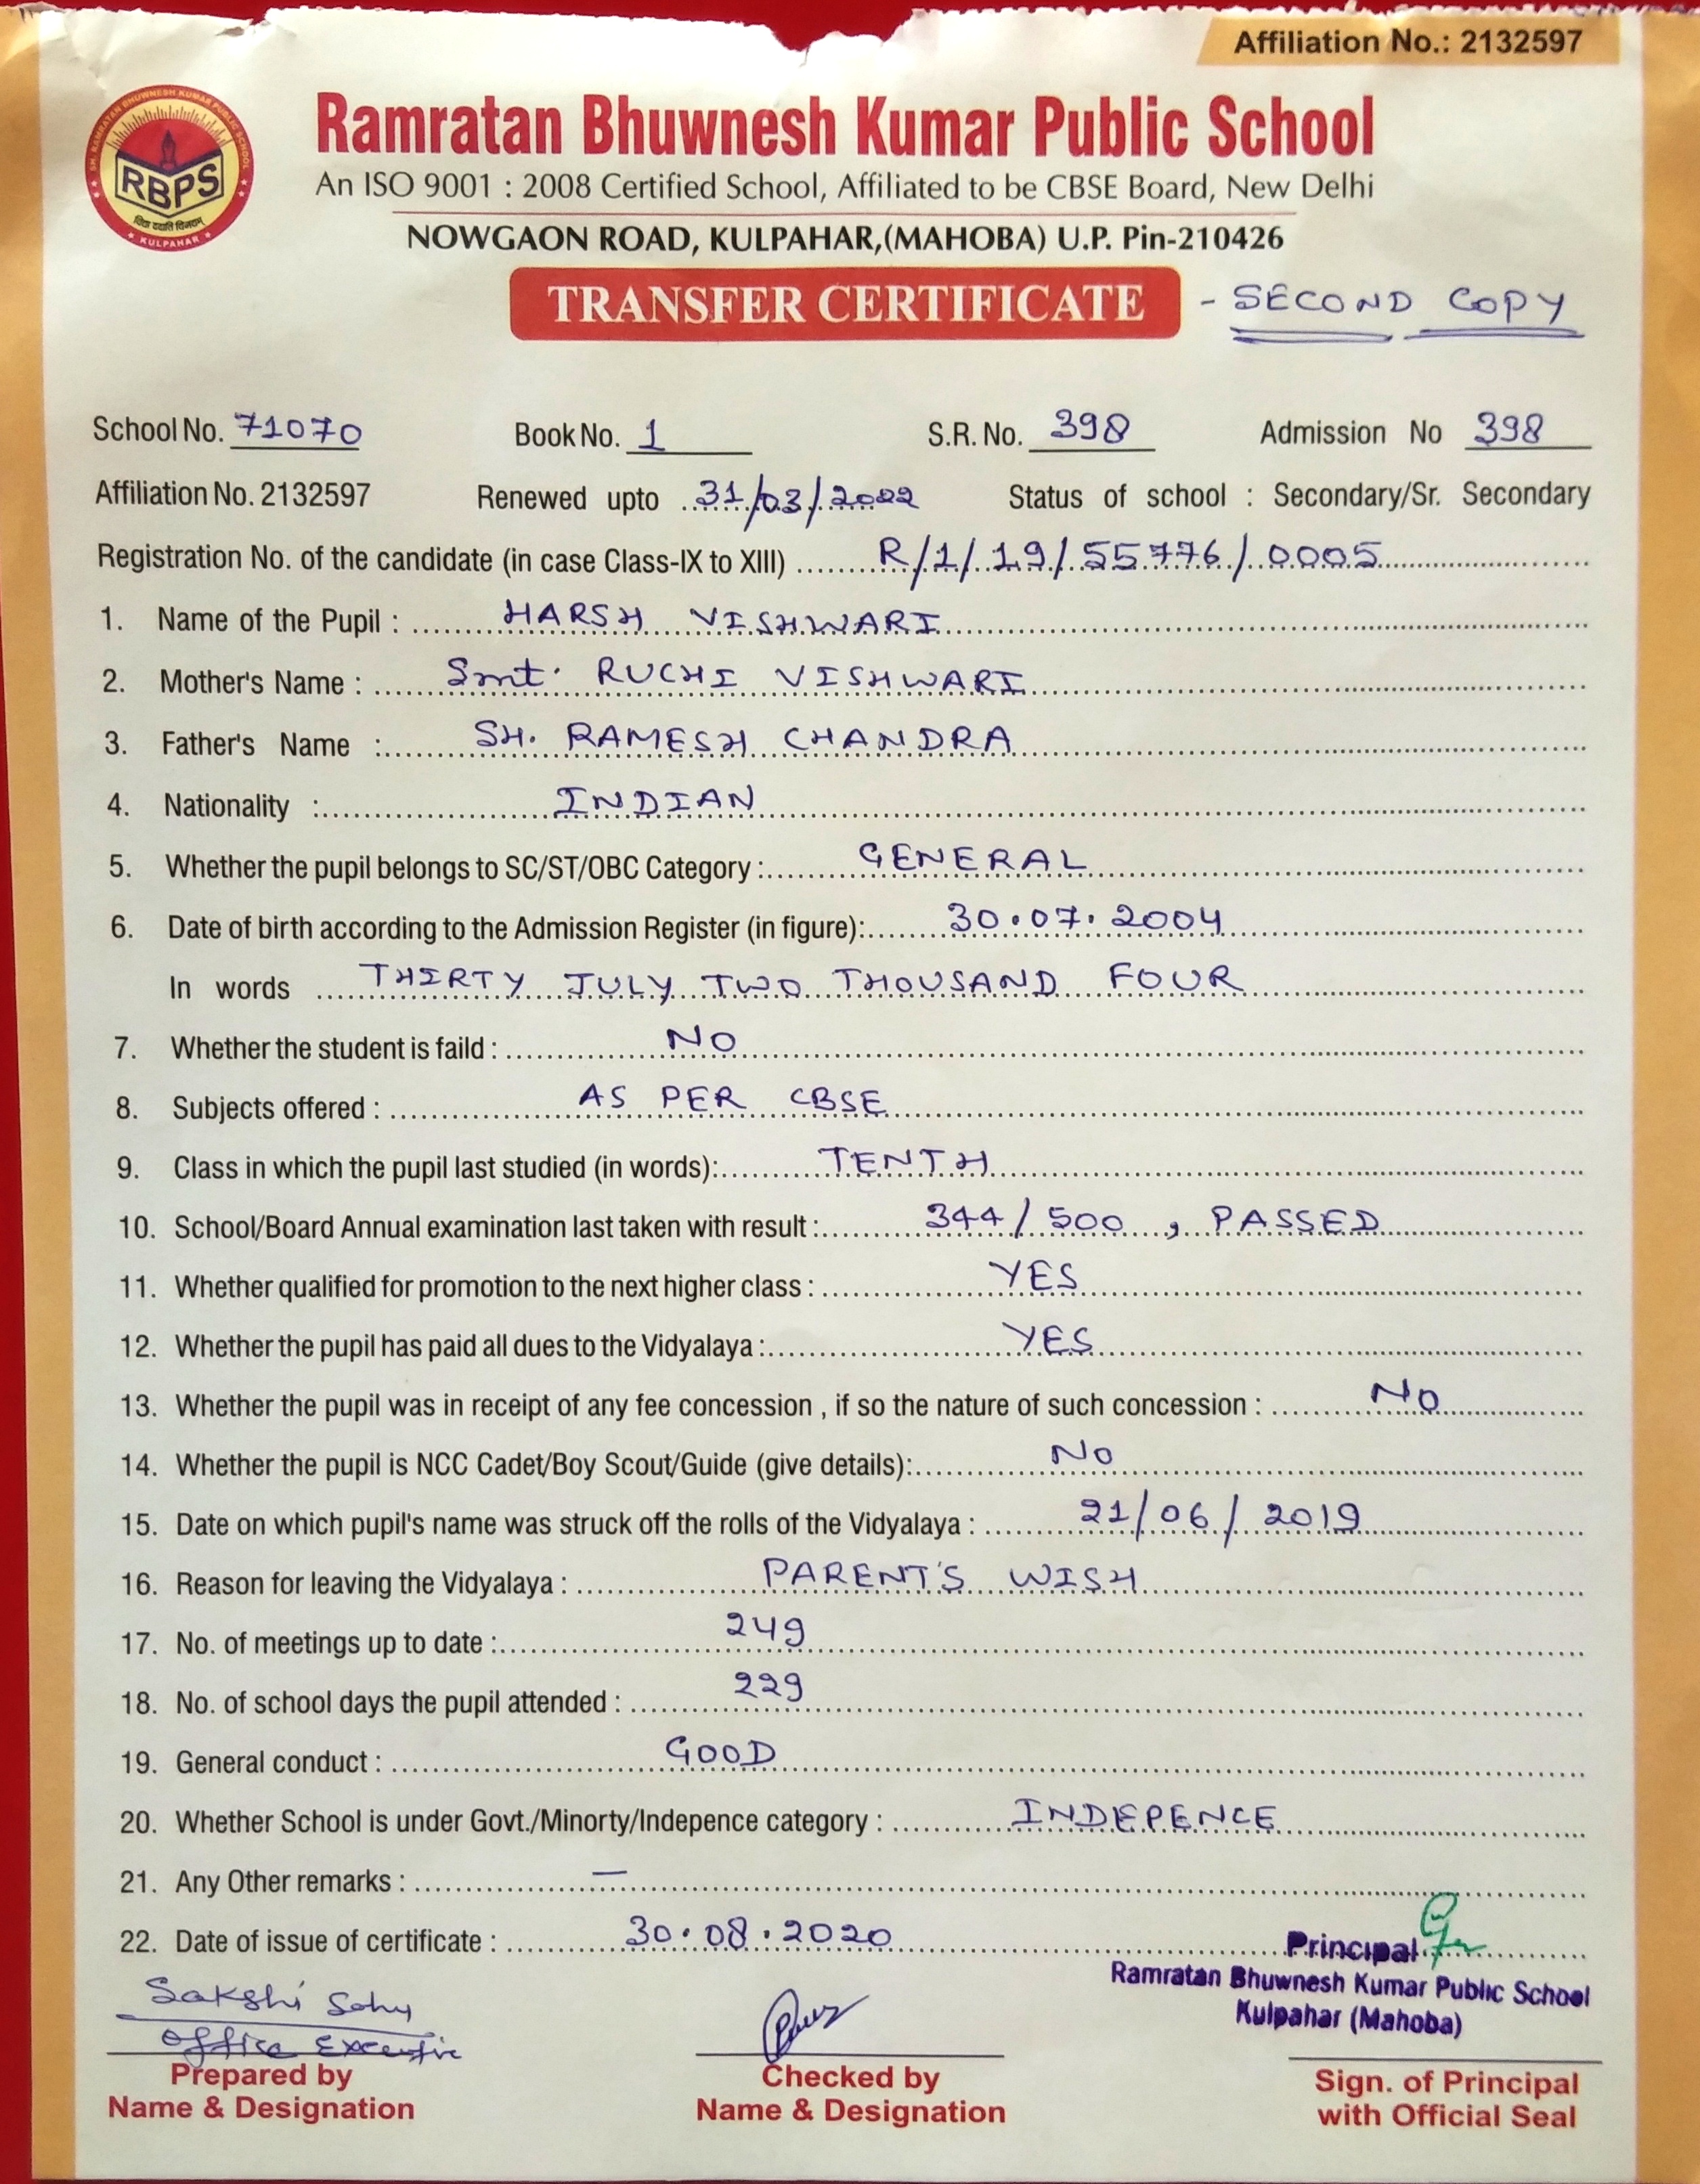 Affiliation No.: 2132597
SH. RAMRATAN BHUWNESH KUMAR PUBLIC SCHOOL
RBPS
विद्या ददाति विनयम्
KULPAHAR
Ramratan Bhuwnesh Kumar Public School
An ISO 9001 : 2008 Certified School, Affiliated to be CBSE Board, New Delhi
NOWGAON ROAD, KULPAHAR,(MAHOBA) U.P. Pin-210426
TRANSFER CERTIFICATE - SECOND COPY
School No. 71070 Book No. 1 S.R. No. 398 Admission No 398
Affiliation No. 2132597 Renewed upto 31/03/2022 Status of school : Secondary/Sr. Secondary
Registration No. of the candidate (in case Class-IX to XIII) R/1/19/55776/0005
1. Name of the Pupil : HARSH VISHWARI
2. Mother's Name : Smt. RUCHI VISHWARI
3. Father's Name : SH. RAMESH CHANDRA
4. Nationality : INDIAN
5. Whether the pupil belongs to SC/ST/OBC Category : GENERAL
6. Date of birth according to the Admission Register (in figure): 30.07.2004
In words THIRTY JULY TWO THOUSAND FOUR
7. Whether the student is faild : NO
8. Subjects offered : AS PER CBSE
9. Class in which the pupil last studied (in words): TENTH
10. School/Board Annual examination last taken with result : 344/500, PASSED
11. Whether qualified for promotion to the next higher class : YES
12. Whether the pupil has paid all dues to the Vidyalaya : YES
13. Whether the pupil was in receipt of any fee concession , if so the nature of such concession : NO
14. Whether the pupil is NCC Cadet/Boy Scout/Guide (give details): NO
15. Date on which pupil's name was struck off the rolls of the Vidyalaya : 21/06/2019
16. Reason for leaving the Vidyalaya : PARENT'S WISH
17. No. of meetings up to date : 249
18. No. of school days the pupil attended : 229
19. General conduct : GOOD
20. Whether School is under Govt./Minorty/Indepence category : INDEPENCE
21. Any Other remarks : —
22. Date of issue of certificate : 30.08.2020
Principal
Ramratan Bhuwnesh Kumar Public School
Kulpahar (Mahoba)
Sakshi Sahy
Office Executive
Prepared by
Name & Designation
Checked by
Name & Designation
Sign. of Principal
with Official Seal